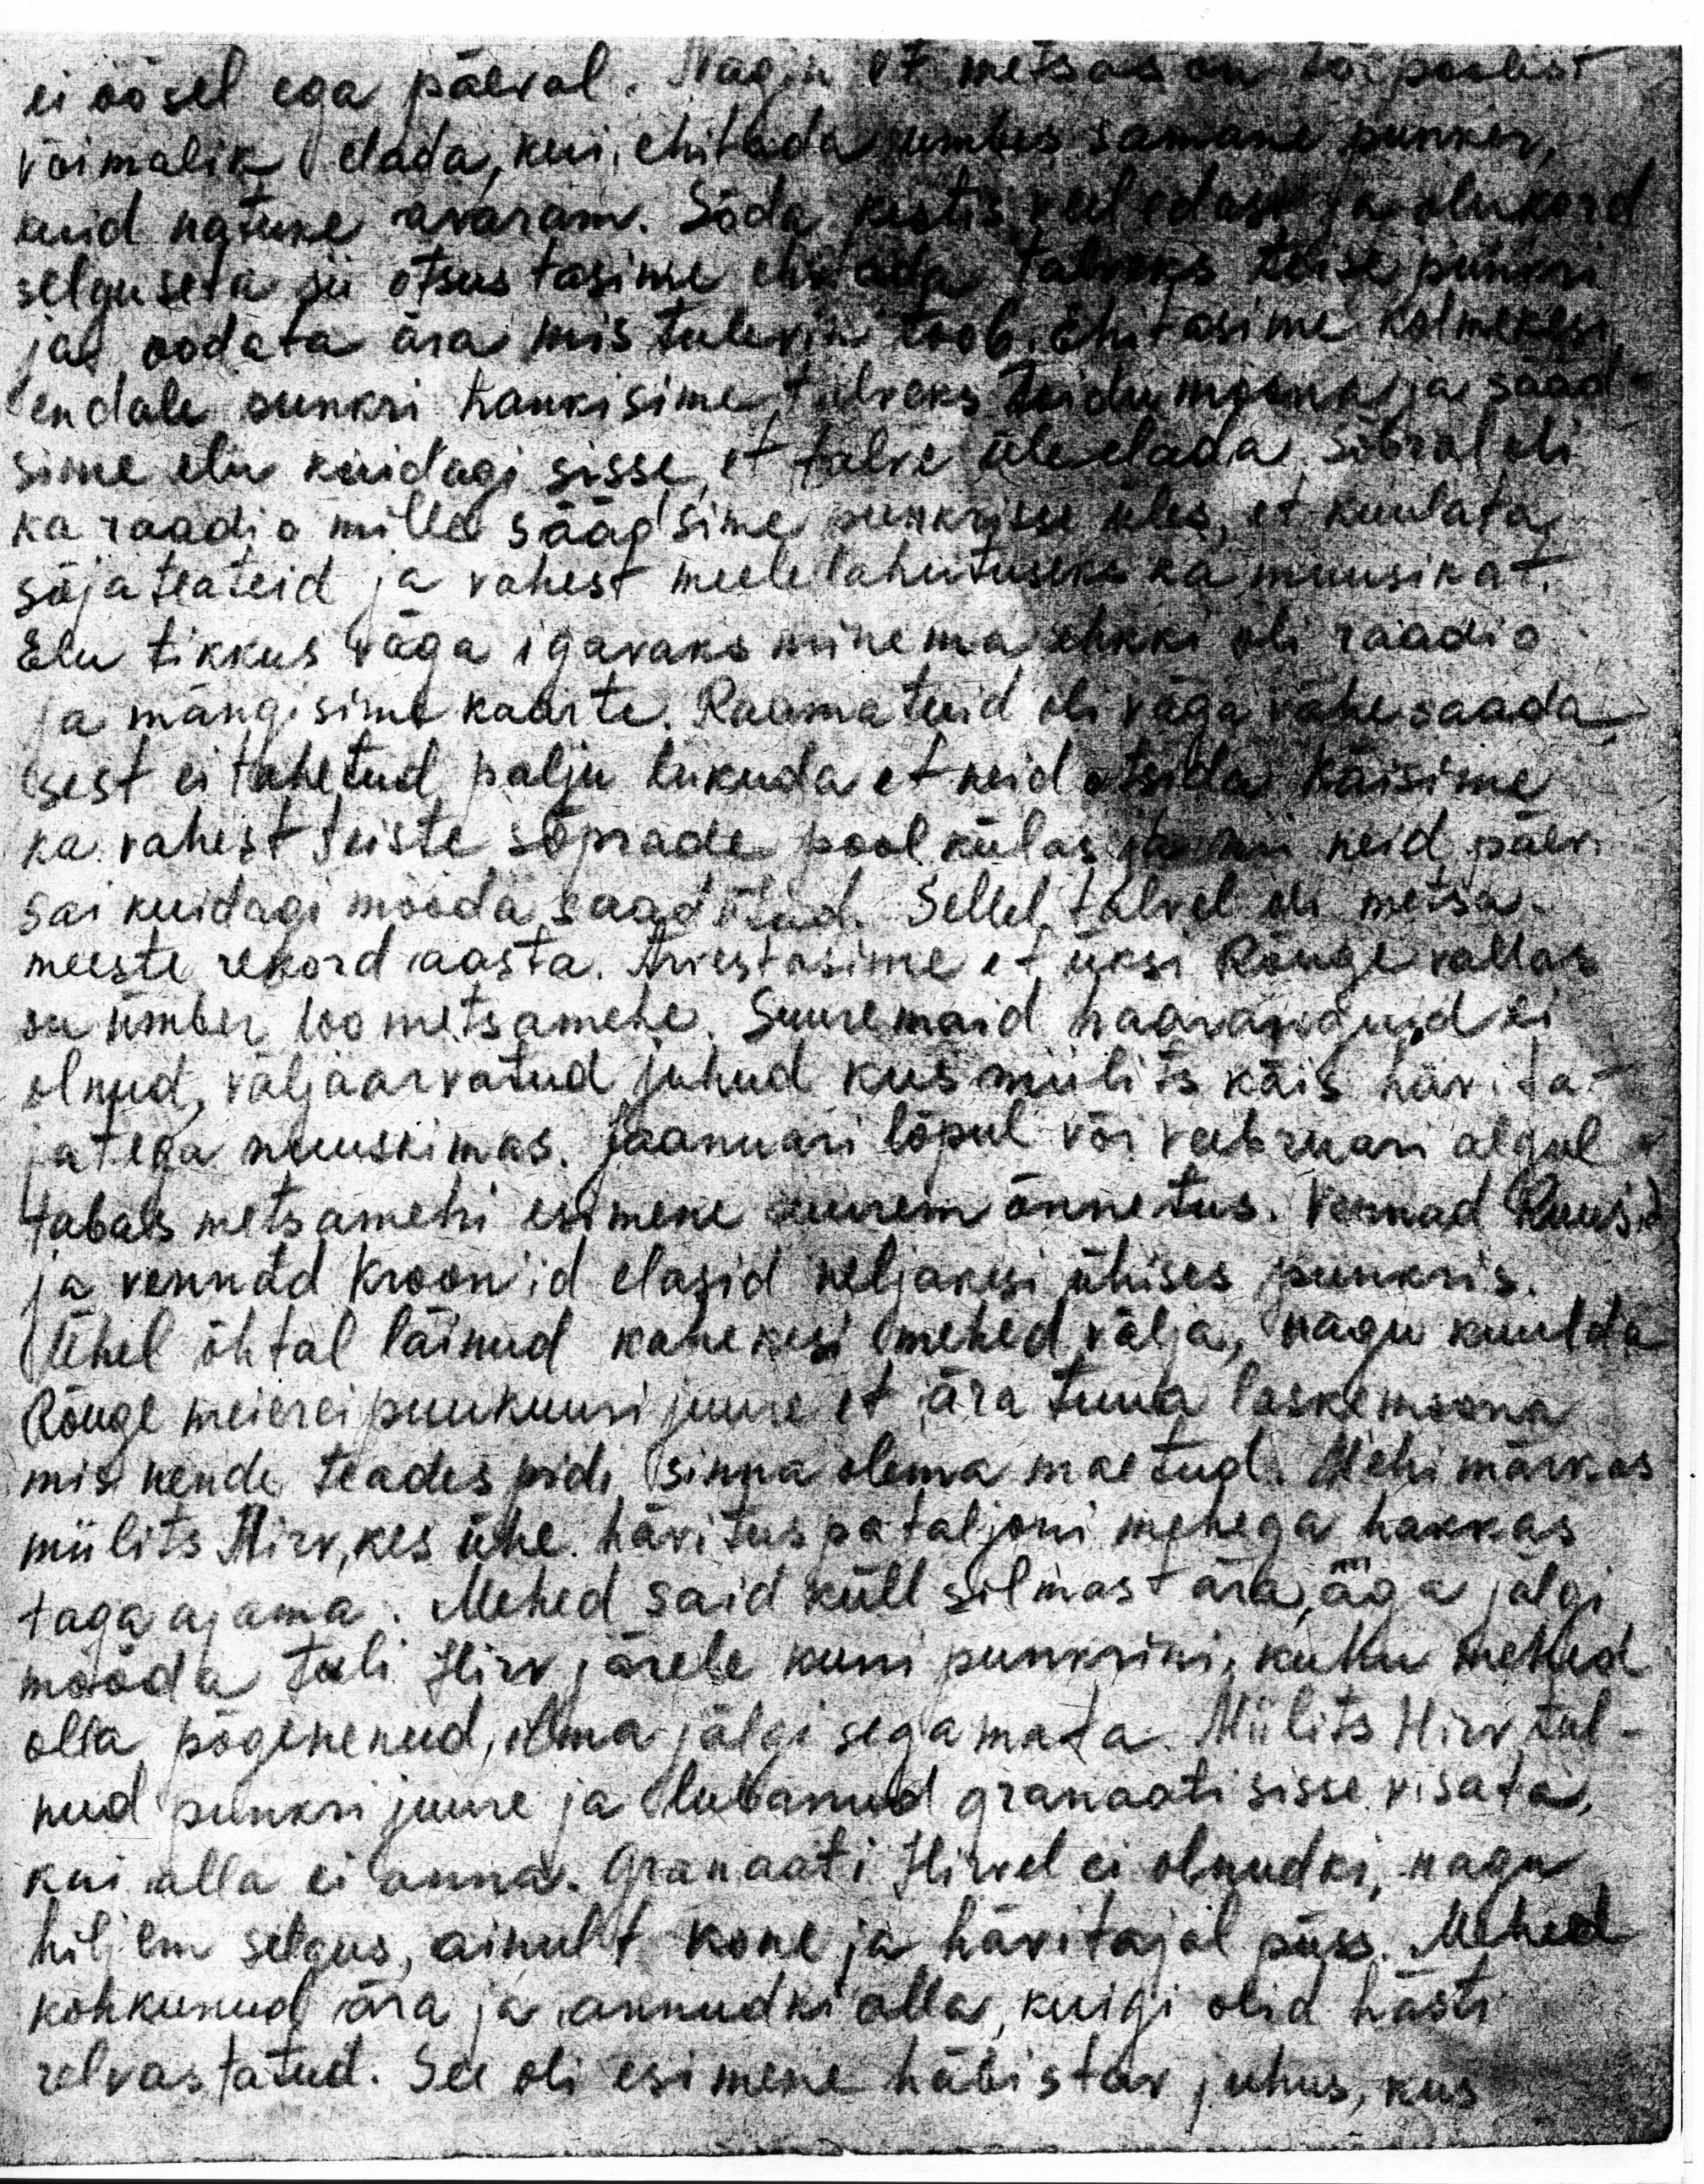 ei öösel ega päeval. Nägin et metsas on tõepoolest
võimalik elada, kui ehitada umbes samane punker,
kuid natuke avaram. Sõda kestis veel edasi ja olukord
selguseta sii otsustasime ehitada talveks teise punkri
ja oodata ära mis tulevik toob. Ehitasime kolmekesi
endale punkri hankisime talveks toidumoona ja sääd-
sime elu kuidagi sisse, et talve üle elada. Sõbral oli
ka raadio mille säädsime punkrisse üles, et kuulata
sõjateateid ja vahest meelelahutuseks ka muusikat.
Elu tikkus väga igavaks minema ehkki oli raadio
ja mängisime kaarte. Raamatuid oli väga vähe saada
sest ei tahetud palju liikuda et neid otsida. Käisime
ka vahest teiste sõprade pool külas ja nii neid päevi
sai kuidagi mööda saadetud. Sellel talvel oli metsa-
meeste rekord aasta. Arvestasime et üksi Rõuge vallas
su ümber 100 metsamehe. Suuremaid haaranguid ei
olnud, väljaarvatud juhud kus miilits käis hävita-
jatega nuuskimas. Jaanuari lõpul või veebruari algul
tabas metsamehi esimene suurem õnnetus. Vennad Ruusid
ja vennad Kroon'id elasid neljakesi ühises punkris.
Ühel õhtal läinud kahekesi mehed välja, nagu kuulda
Rõuge meierei puukuuri juure et ära tuua laskemoona
mis nende teades pidi sinna olema maetud. Mehi märkas
miilits Hirv, kes ühe hävituspataljoni mehega hakkas
taga ajama. Mehed said küll silmast ära, aga jälgi
mööda tuli Hirv järele kuni punkrini, kuhu mehed
olla põgenenud, ilma jälgi segamata. Miilits Hirv tul-
nud punkri juure ja lubanud granaati sisse visata,
kui alla ei anna. Granaati Hirvel ei olnudki, nagu
hiljem selgus, ainult kone ja hävitajal püss. Mehed
kohkunud ära ja annudki alla, kuigi olid hästi
relvastatud. See oli esimene häbistav juhus, kus